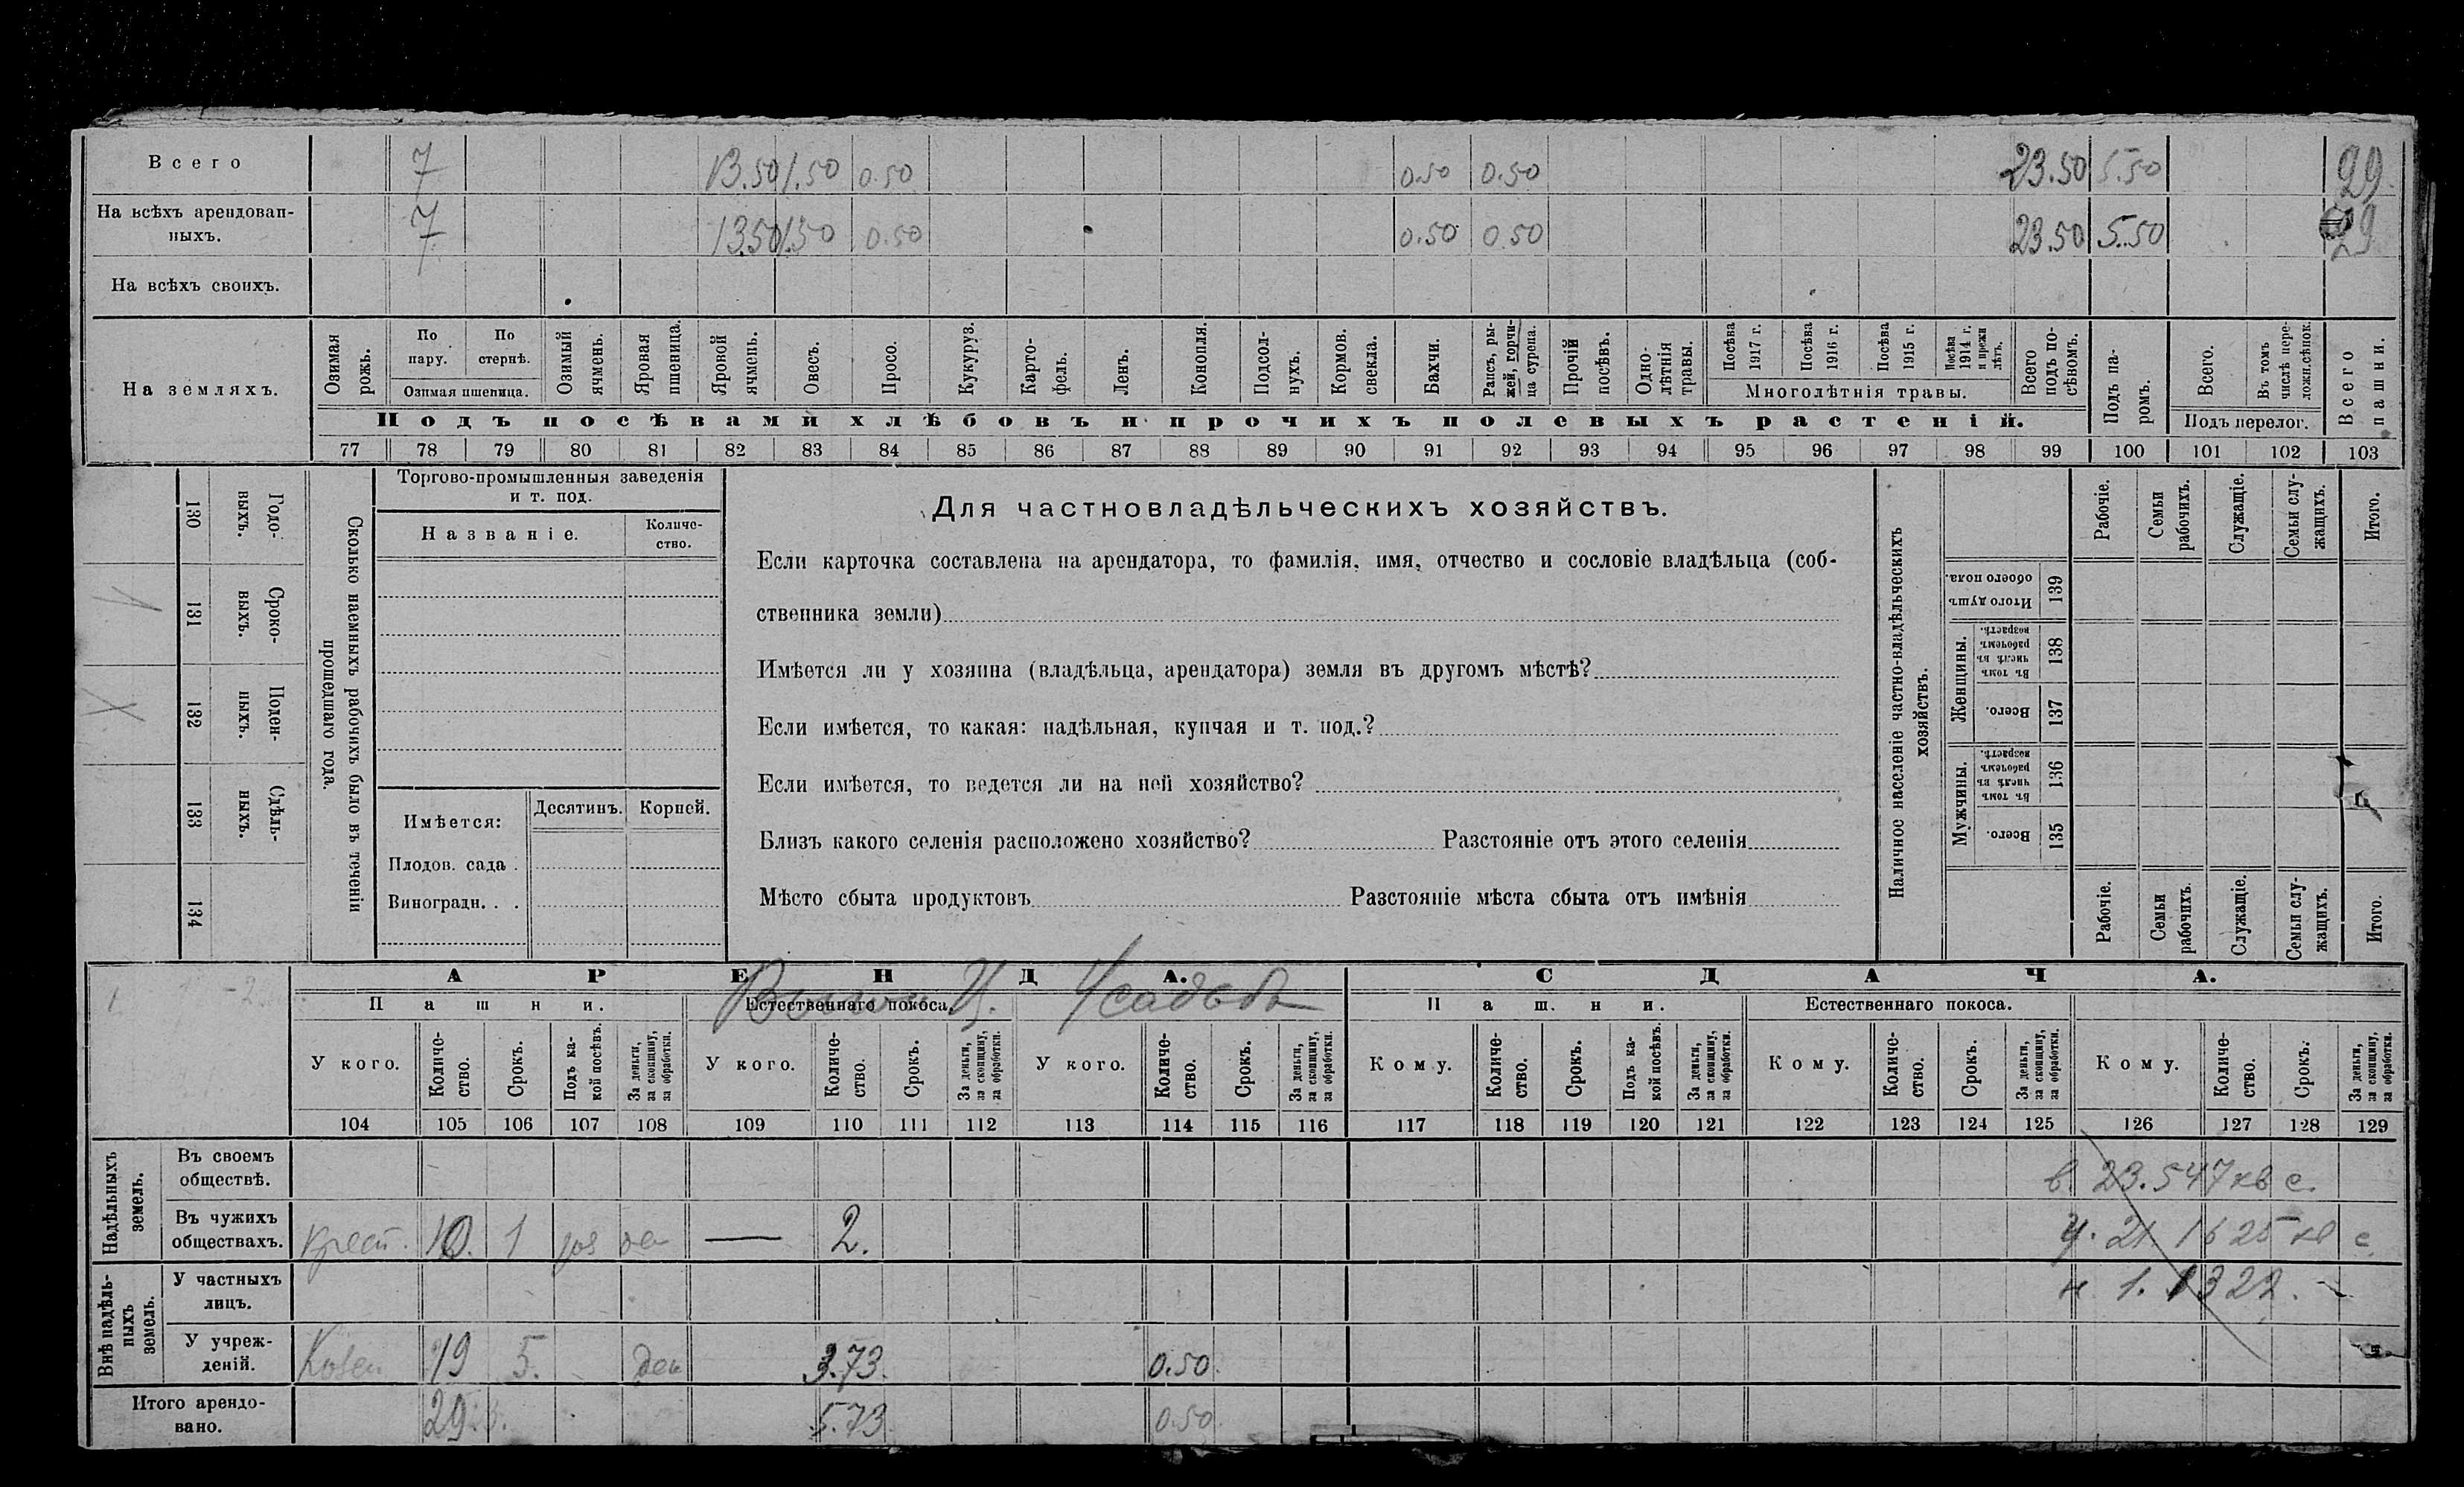 Всего 7 13.50 1.50 0.50 0.50 0.50 23.50 5.50 29
На всѣхъ арендован-
ныхъ. 7 13.50 1.50 0.50 0.50 0.50 23.50 5.50 29
На всѣхъ своихъ.
На земляхъ.
Озимая рожь.
По пару.
По стернѣ.
Озимая пшеница.
Озимый ячмень.
Яровая пшеница.
Яровой ячмень.
Овесъ.
Просо.
Кукуруз.
Карто-
фель.
Ленъ.
Конопля.
Подсол-
нухъ.
Кормов. свекла.
Бахчи.
Рапсъ, ры-
жей, горчи-
ца сурепа.
Прочій посѣвъ.
Одно-
лѣтнія травы.
Посѣва 1917 г.
Посѣва 1916 г.
Посѣва 1915 г.
Посѣва 1914 г. и прежн лѣтъ.
Многолѣтнія травы.
Всего подъ по-
сѣвомъ.
Подъ посѣвами хлѣбовъ и прочихъ полевыхъ растеній.
Подъ па-
ромъ.
Всего.
Въ томъ числѣ пере-
ложн.сѣнок.
Подъ перелог.
Всего пашни.
77 78 79 80 81 82 83 84 85 86 87 88 89 90 91 92 93 94 95 96 97 98 99 100 101 102 103
Сколько наемныхъ рабочихъ было въ теченіи
прошедшаго года.
Годо-
выхъ.
130
Сроко-
выхъ.
131
Поден-
ныхъ.
132
Сдѣль-
ныхъ.
133
134
Торгово-промышленныя заведенія
и т. под.
Названіе.
Количе-
ство.
Имѣется:
Десятинъ.
Корней.
Плодов. сада .
Виноградн. . .
Для частновладѣльческихъ хозяйствъ.
Если карточка составлена на арендатора, то фамилія, имя, отчество и сословіе владѣльца (соб-
ственника земли)
Имѣется ли у хозяина (владѣльца, арендатора) земля въ другомъ мѣстѣ?
Если имѣется, то какая: надѣльная, купчая и т. под.?
Если имѣется, то ведется ли на ней хозяйство?
Близъ какого селенія расположено хозяйство? Разстояніе отъ этого селенія
Мѣсто сбыта продуктовъ Разстояніе мѣста сбыта отъ имѣнія
Наличное населеніе частно-владѣльческихъ
хозяйствъ.
Рабочіе.
Семьи рабочихъ.
Служащіе.
Семьи слу-
жащихъ.
Итого.
Итого душъ обоего пола.
139
Женщины.
Въ томъ числѣ въ рабочемъ возрастѣ.
138
Всего.
137
Мужчины.
Въ томъ числѣ въ рабочемъ возрастѣ.
136
Всего.
135
Рабочіе.
Семьи рабочихъ.
Служащіе.
Семьи слу-
жащихъ.
Итого.
АРЕНДА.
СДАЧА.
Пашни.
Естественнаго покоса.
Усадьба
Пашни.
Естественнаго покоса.
У кого.
Количе-
ство.
Срокъ.
Подъ ка-
кой посѣвъ.
За деньги,
за скопщину,
за обработки.
У кого.
Количе-
ство.
Срокъ.
За деньги,
за скопщину,
за обработки.
У кого.
Количе-
ство.
Срокъ.
За деньги,
за скопщину,
за обработки.
Кому.
Количе-
ство.
Срокъ.
Подъ ка-
кой посѣвъ.
За деньги,
за скопщину,
за обработки.
Кому.
Количе-
ство.
Срокъ.
За деньги,
за скопщину,
за обработки.
Кому.
Количе-
ство.
Срокъ.
За деньги,
за скопщину,
за обработки.
104 105 106 107 108 109 110 111 112 113 114 115 116 117 118 119 120 121 122 123 124 125 126 127 128 129
Надѣльныхъ земель.
Въ своемъ
обществѣ. 23.547 кв с.
Въ чужихъ
обществахъ. Крест. 10. 1 — 2. 21. 1625 кв с
Внѣ надѣль-
ныхъ земель.
У частныхъ
лицъ. н 1. 1322.
У учреж-
деній. 19 5. ден 3.73. 0.50.
Итого арендо-
вано. 29. 5.73 0.50